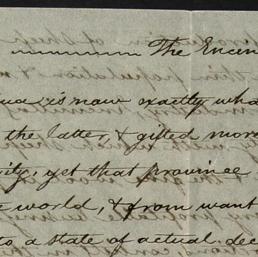 The Encen
is now exactly wha
the latter, & gifted more
ity, yet that province
e world, & from want
to a state of actual dec